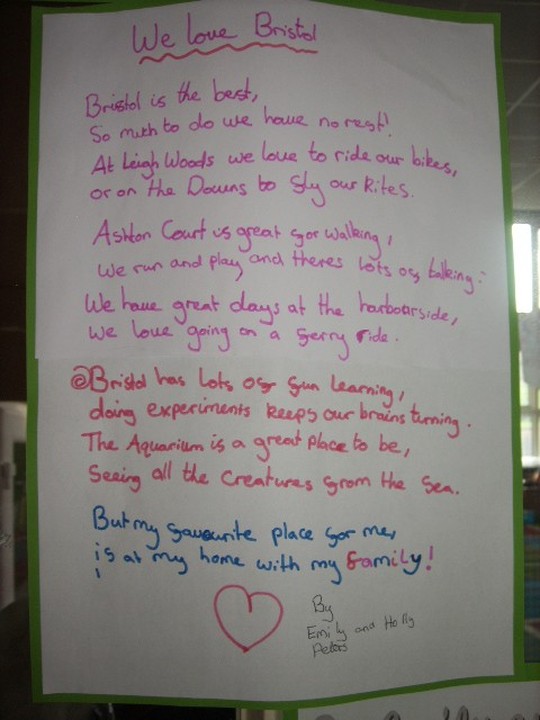 We love Bristol
Bristol is the best,
So much to do we have no rest!
At Leigh Woods we love to ride our bikes,
or on the Downs to fly our kites.
Ashton Court is great for walking,
We run and play and theres lots of talking.
We have great days at the harbourside,
We love going on a ferry ride.
@Bristol has lots of fun learning,
doing experiments keeps our brains turning.
The Aquarium is a great place to be,
Seeing all the creatures from the sea.
But my favourite place for me,
is at my home with my family!
By
Emily and Holly